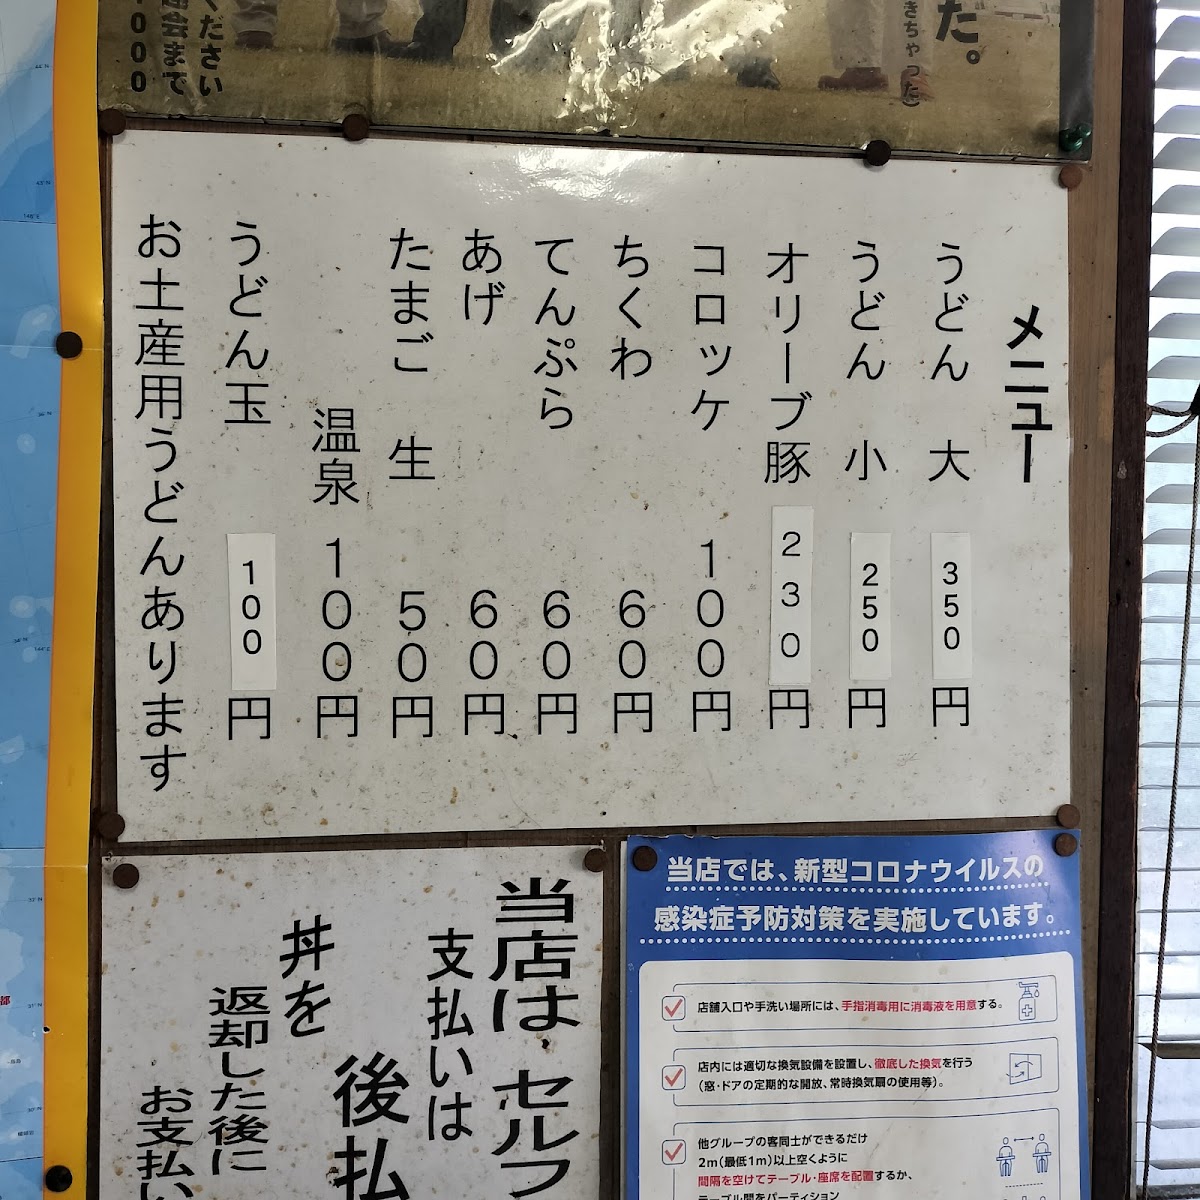 ください
会まで
000
だ。
きちゃった)
メニュー
うどん 大 350円
うどん 小 250円
オリーブ豚 230円
コロッケ 100円
ちくわ 60円
てんぷら 60円
あげ 60円
たまご 生 50円
温泉 100円
うどん玉 100円
お土産用うどんあります
当店は セルフ
支払いは
後払
丼を
返却した後に
お支払い
当店では、新型コロナウイルスの
感染症予防対策を実施しています。
店舗入口や手洗い場所には、手指消毒用に消毒液を用意する。
店内には適切な換気設備を設置し、徹底した換気を行う
(窓・ドアの定期的な開放、常時換気扇の使用等)。
他グループの客同士ができるだけ
2m(最低1m)以上空くように
間隔を空けてテーブル・座席を配置するか、
テーブル間をパーティション